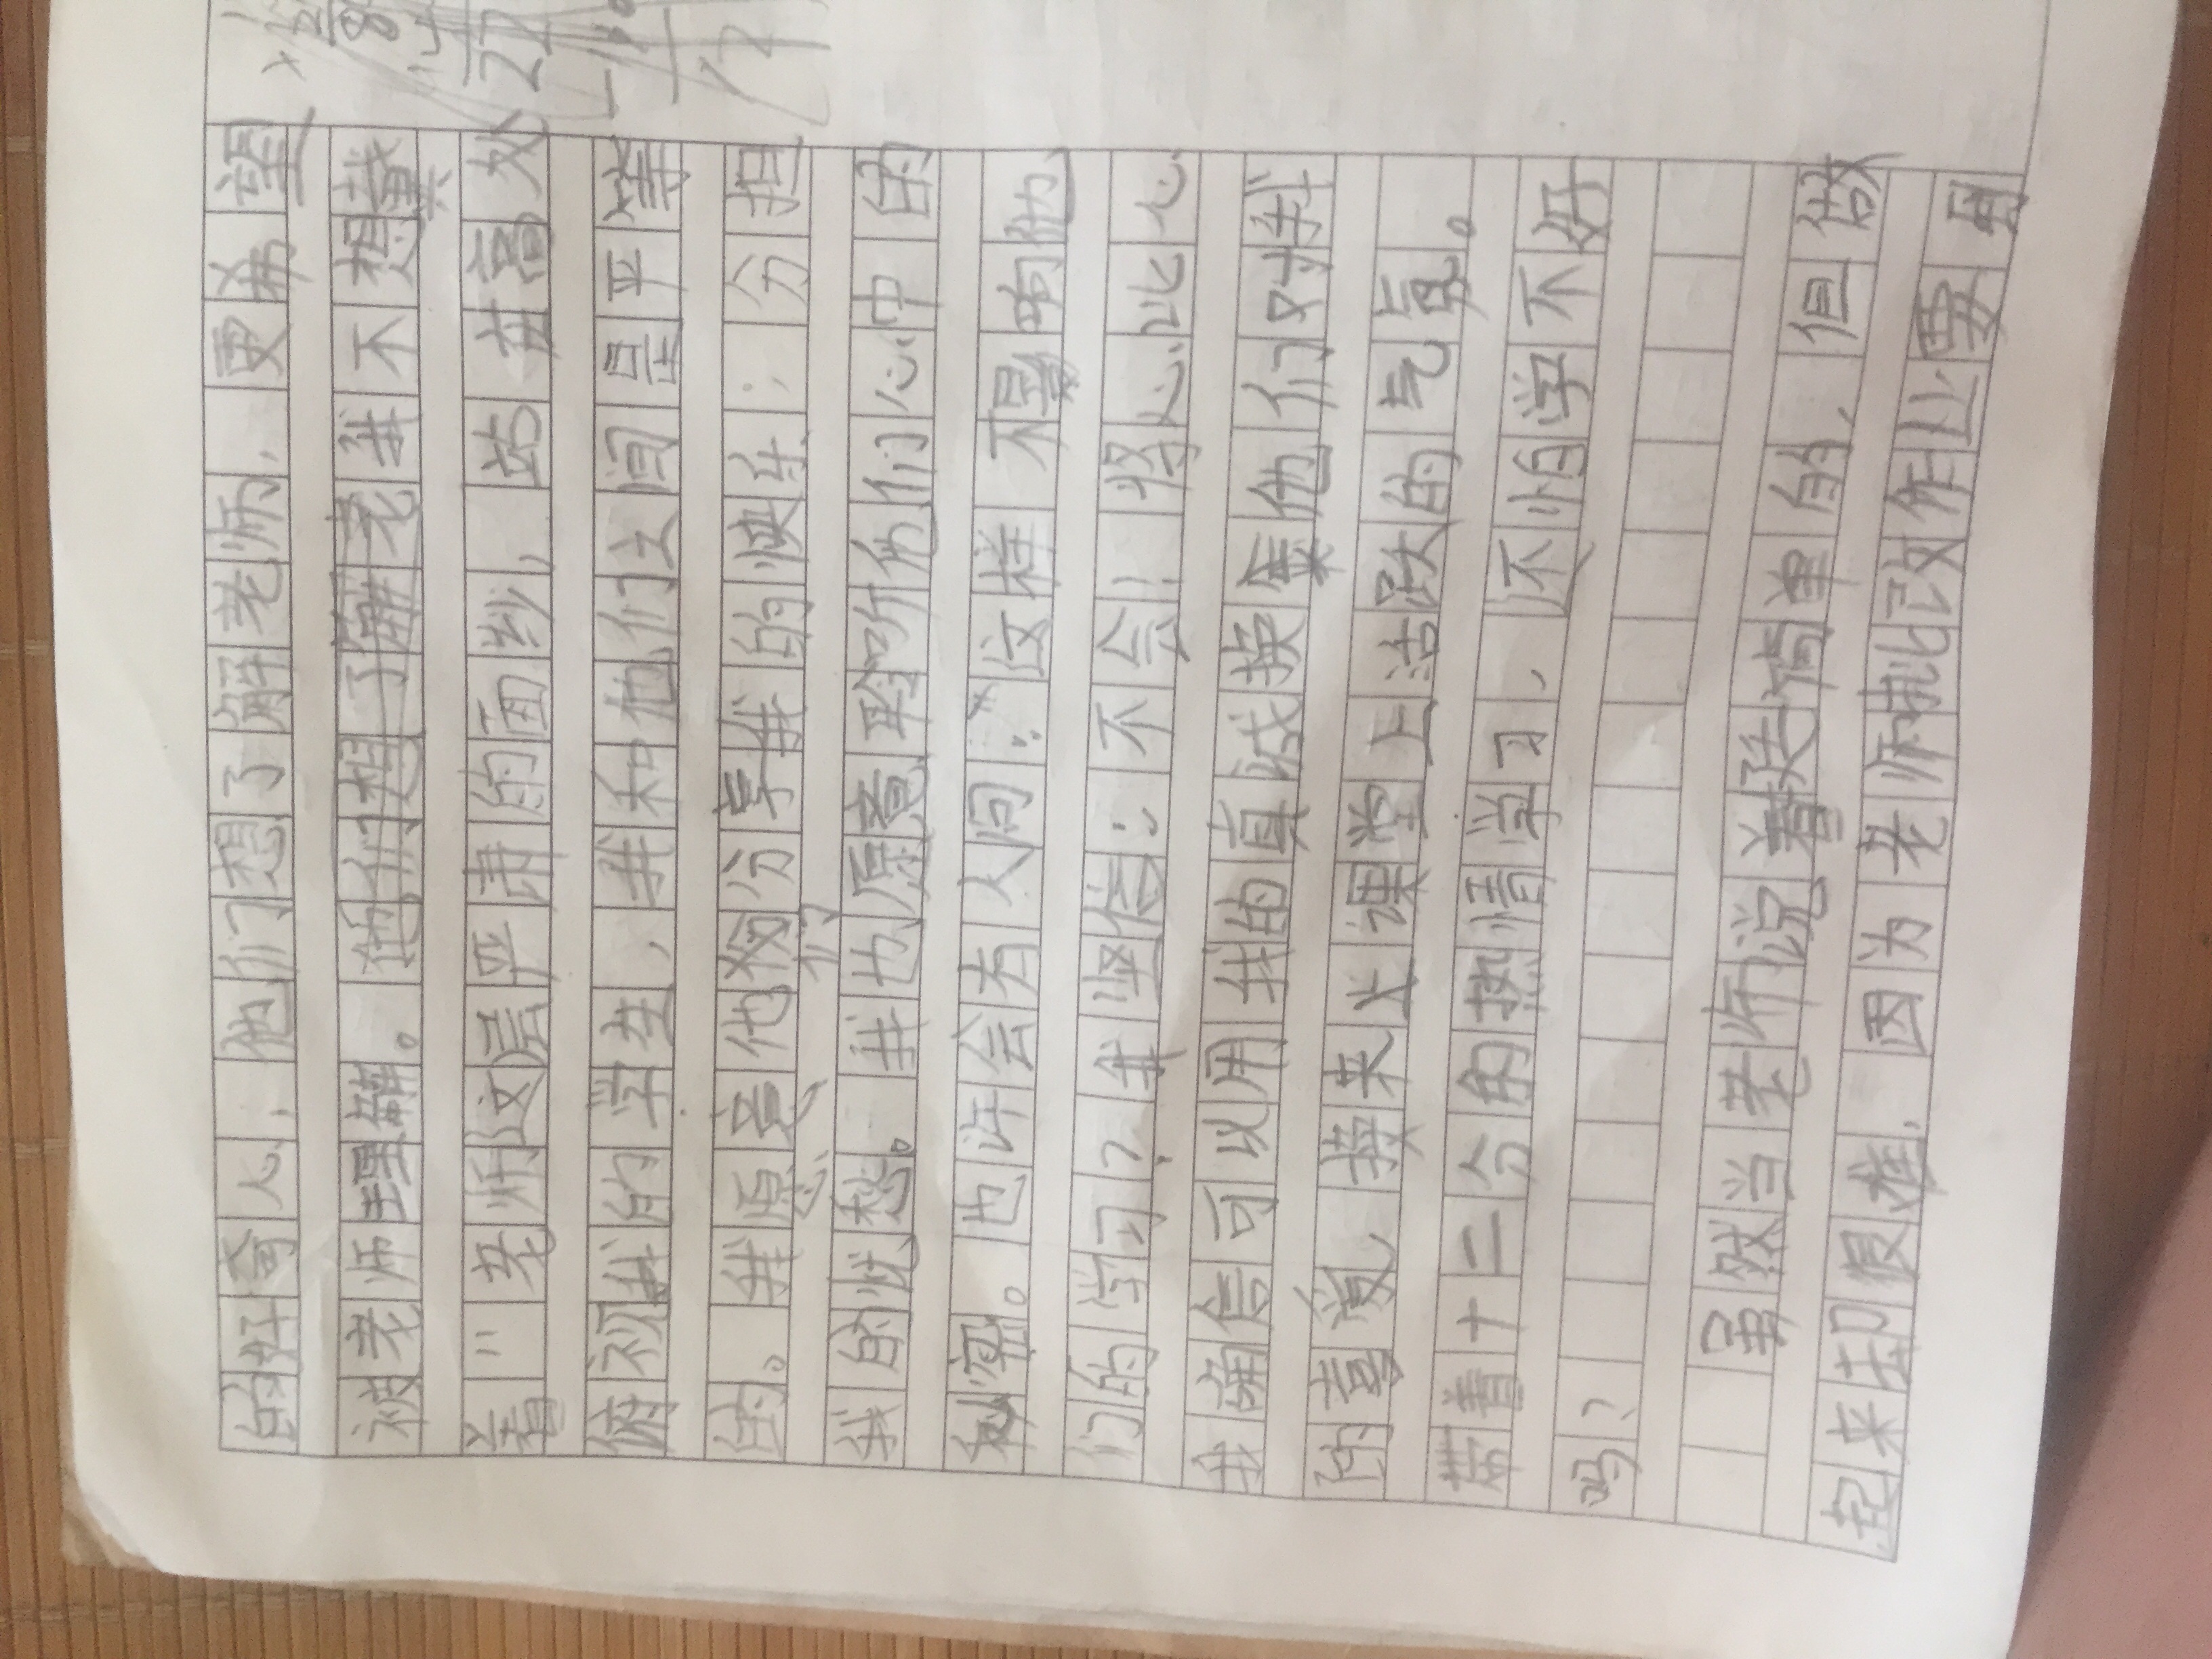 的好奇心，他们想了解老师，更希望
被老师理解。他们想了解老我不想戴
着“老师”这层严肃的面纱，站在高处
俯视我的学生，我和他们之间是平等
的。我愿意他们分享我的快乐；分担
我的忧愁。我也愿意聆听他们心中的
秘密。也许会有人问：“这样不影响他
们的学习？我坚信：不会！将心比心，
我确信可以用我的真诚换来他们对我
的喜爱，换来上课堂上活跃的气氛。
带着十二分的热情学习，还怕学不好
吗？
虽然当老师说着挺简单的，但做
起来却很难，因为老师批改作业要用